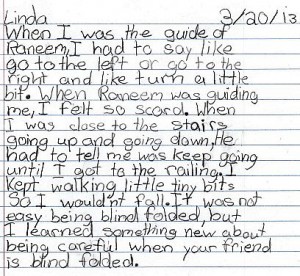 Linda 3/20/13
When I was the guide of
Raneem,I had to say like
go to the left or go to the
right and like turn a little
bit. When Raneem was guiding
me, I felt so scard. When
I was close to the stairs
going up and going down,He
had to tell me was keep going
until I got to the railing.I
kept walking little tiny bits
so I wouldn't fall.It was not
easy being blind folded, but
I learned something new about
being careful when your friend
is blind folded.